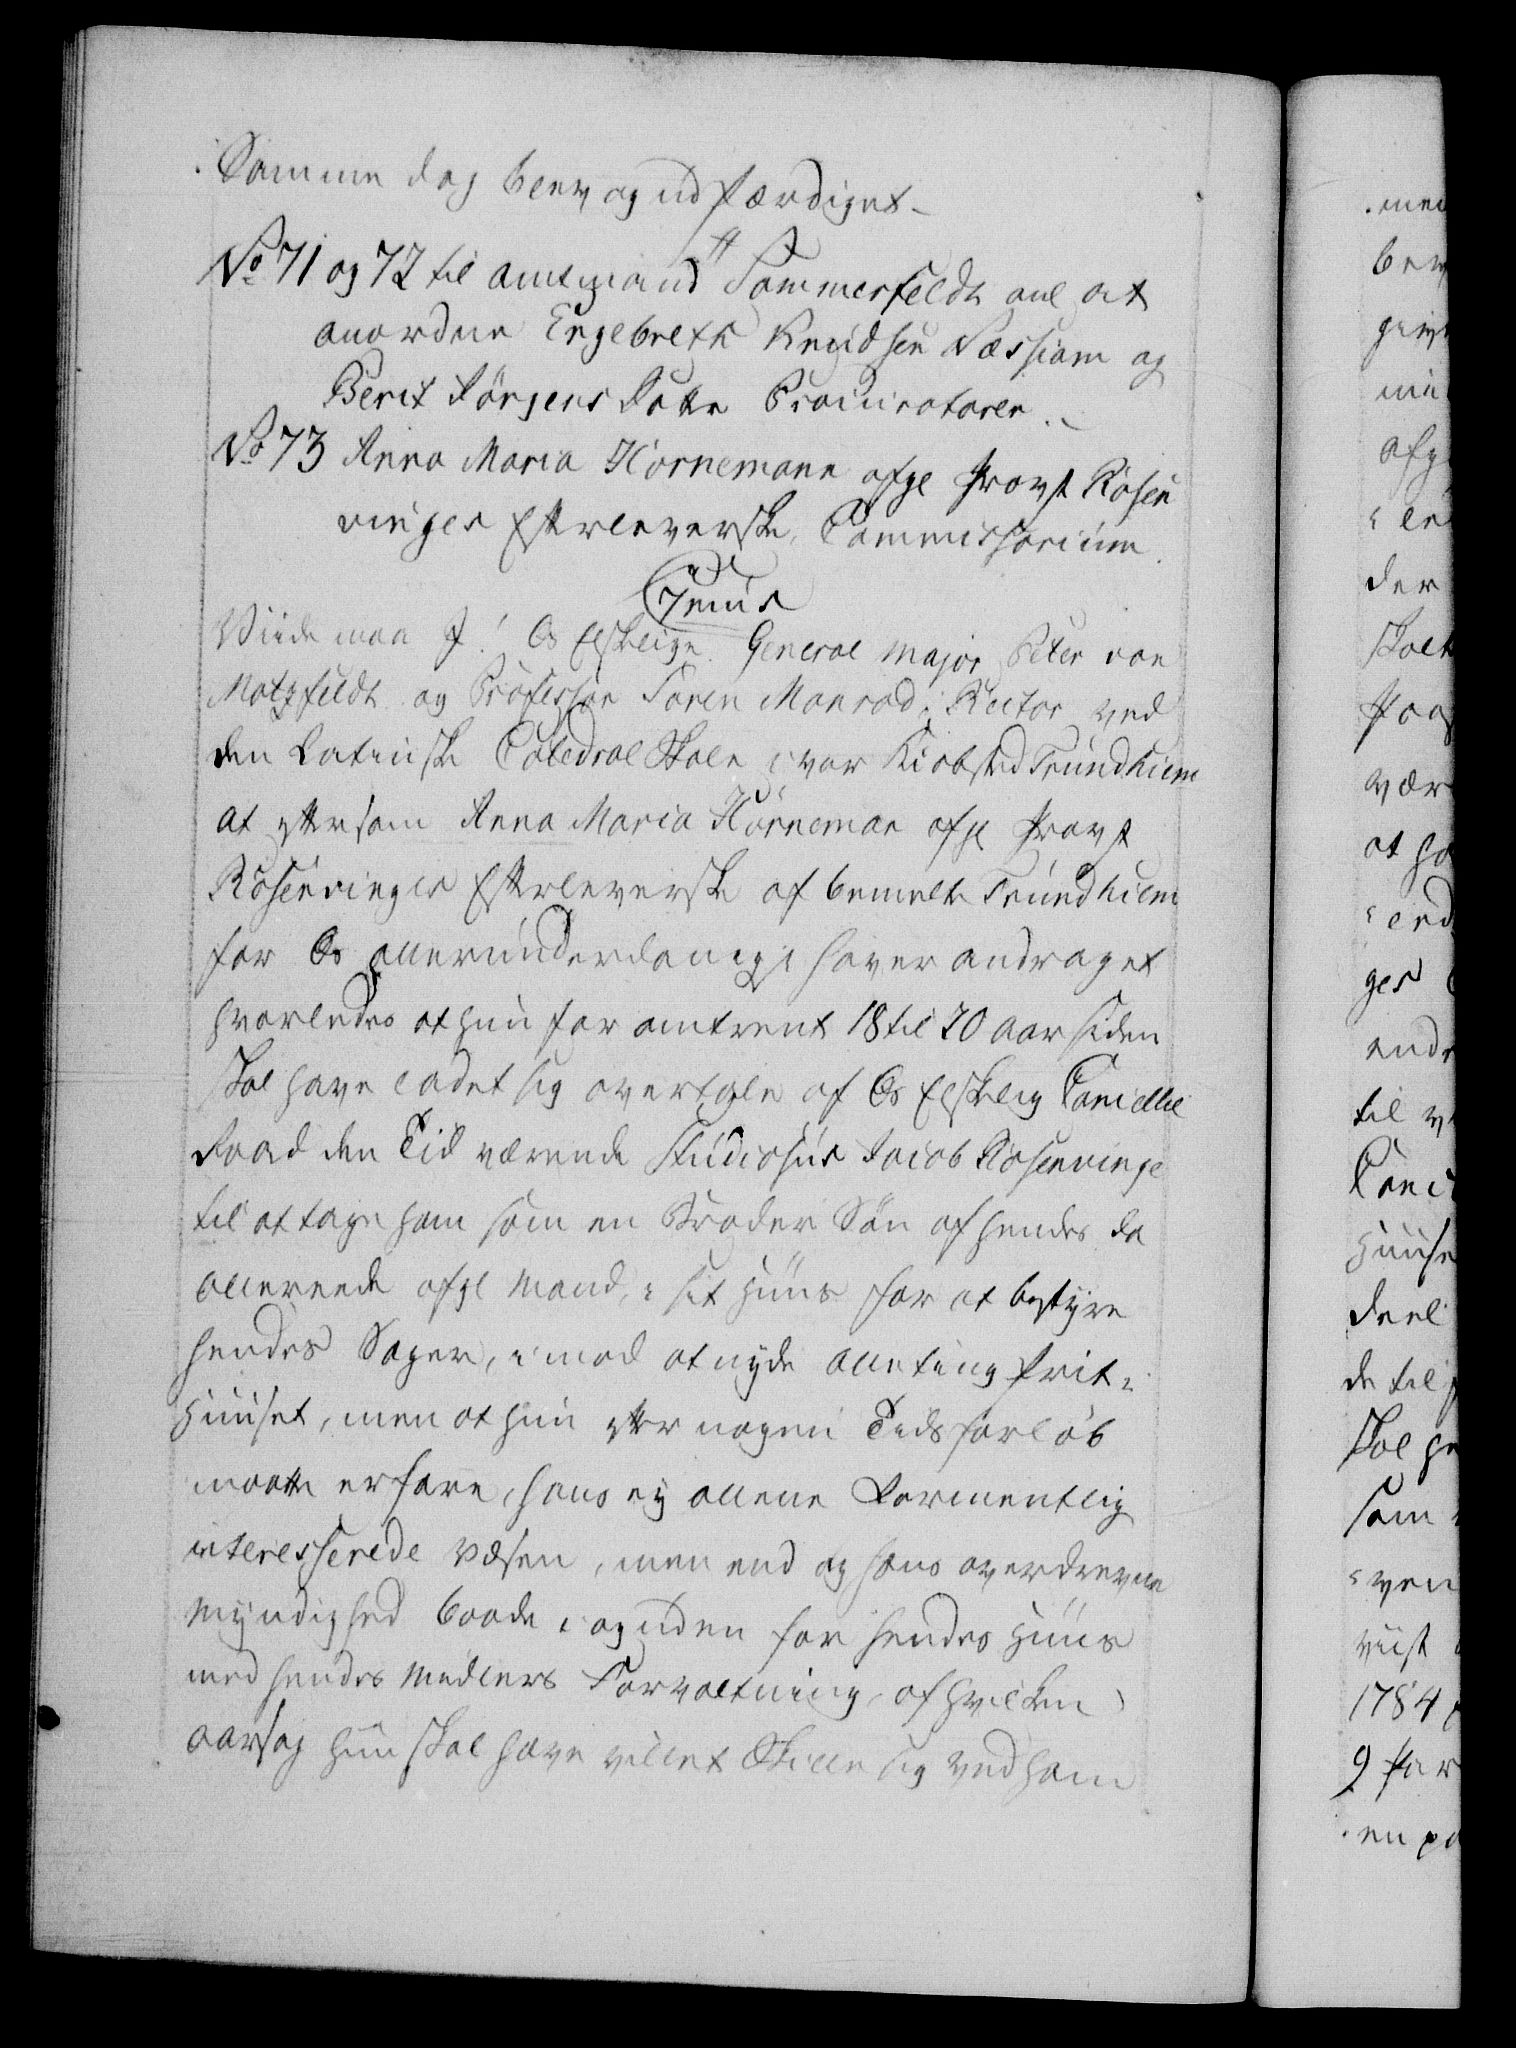 Samme dag blev og udfærdiget
No 71 og 72 til Amtmand Sommerfeldt anl at
anordne Engebreth Knudsen Næssiom og
Berit Jörgens Datter Procuratorer.
No 73 Anna Maria Hornemann afgl Provst Rosen
vinges Efterleverske, Commissorium.
C 7mus
Viide maa I! Os Elskelige General Major Peter von
Motzfeldt og Professor Soren Monrad, Rector ved
den Latinske Catedral Skole i vor Kiöbsted Trundhiem
at eftersom Anna Maria Horneman afgl Provst
Rosenvinges Efterleverske af bemelte Trundhiem
for Os allerunderdanigst haver andraget
hvorledes at hun for omtrent 18 til 20 Aar siden
skal have ladet sig overtale af Os Elskelig Cancellie
Raad den Tid værende Studiosus Jacob Rosenvinge
til at tage ham som en Broder Sön af hendes da
allereede afgl Mand, i sit Huus for at bestyre
hendes Sager, imod at nyde alleting frit i
Huuset, men at hun efter nogen Tids forlöb
maatte erfare, hans ey allene formentlig
interesserede Væsen, men end og hans overdrevne
Myndighed baade i og uden for hendes Huus
med hendes Midlers Forvaltning, af hvilken
aarsag hun skal have villet skille sig ved ham